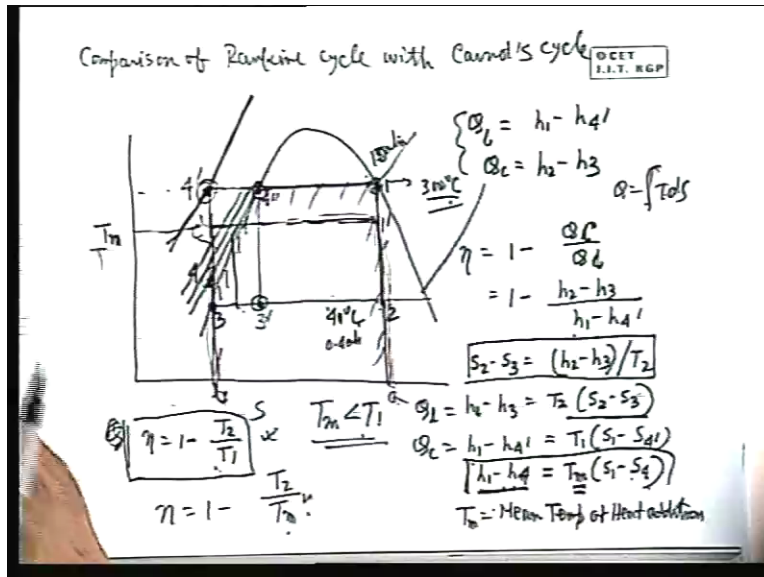 Comparison of Rankine cycle with Carnot's cycle
© CET
I.I.T. KGP
Q_b = h_1 - h_4'
Q_c = h_2 - h_3
Q = ∫Tds
η = 1 - Q_c/Q_b
= 1 - (h_2 - h_3)/(h_1 - h_4')
S_2 - S_3 = (h_2 - h_3)/T_2
= h_2 - h_3 = T_2 (S_2 - S_3)
= h_1 - h_4' = T_1 (S_1 - S_4')
h_1 - h_4 = T_m (S_1 - S_4)
T_m = Mean Temp of Heat addition
4'
4"
1
300°C
T_m
T
4
3
3'
40°C
2
S
η = 1 - T_2/T_1
T_m < T_1
η = 1 - T_2/T_m